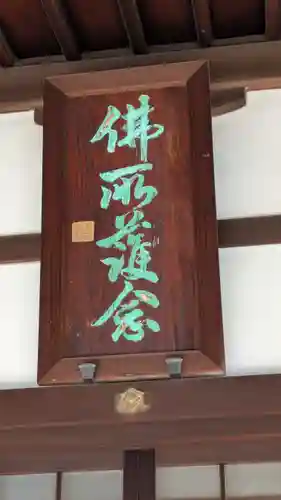 佛所護念